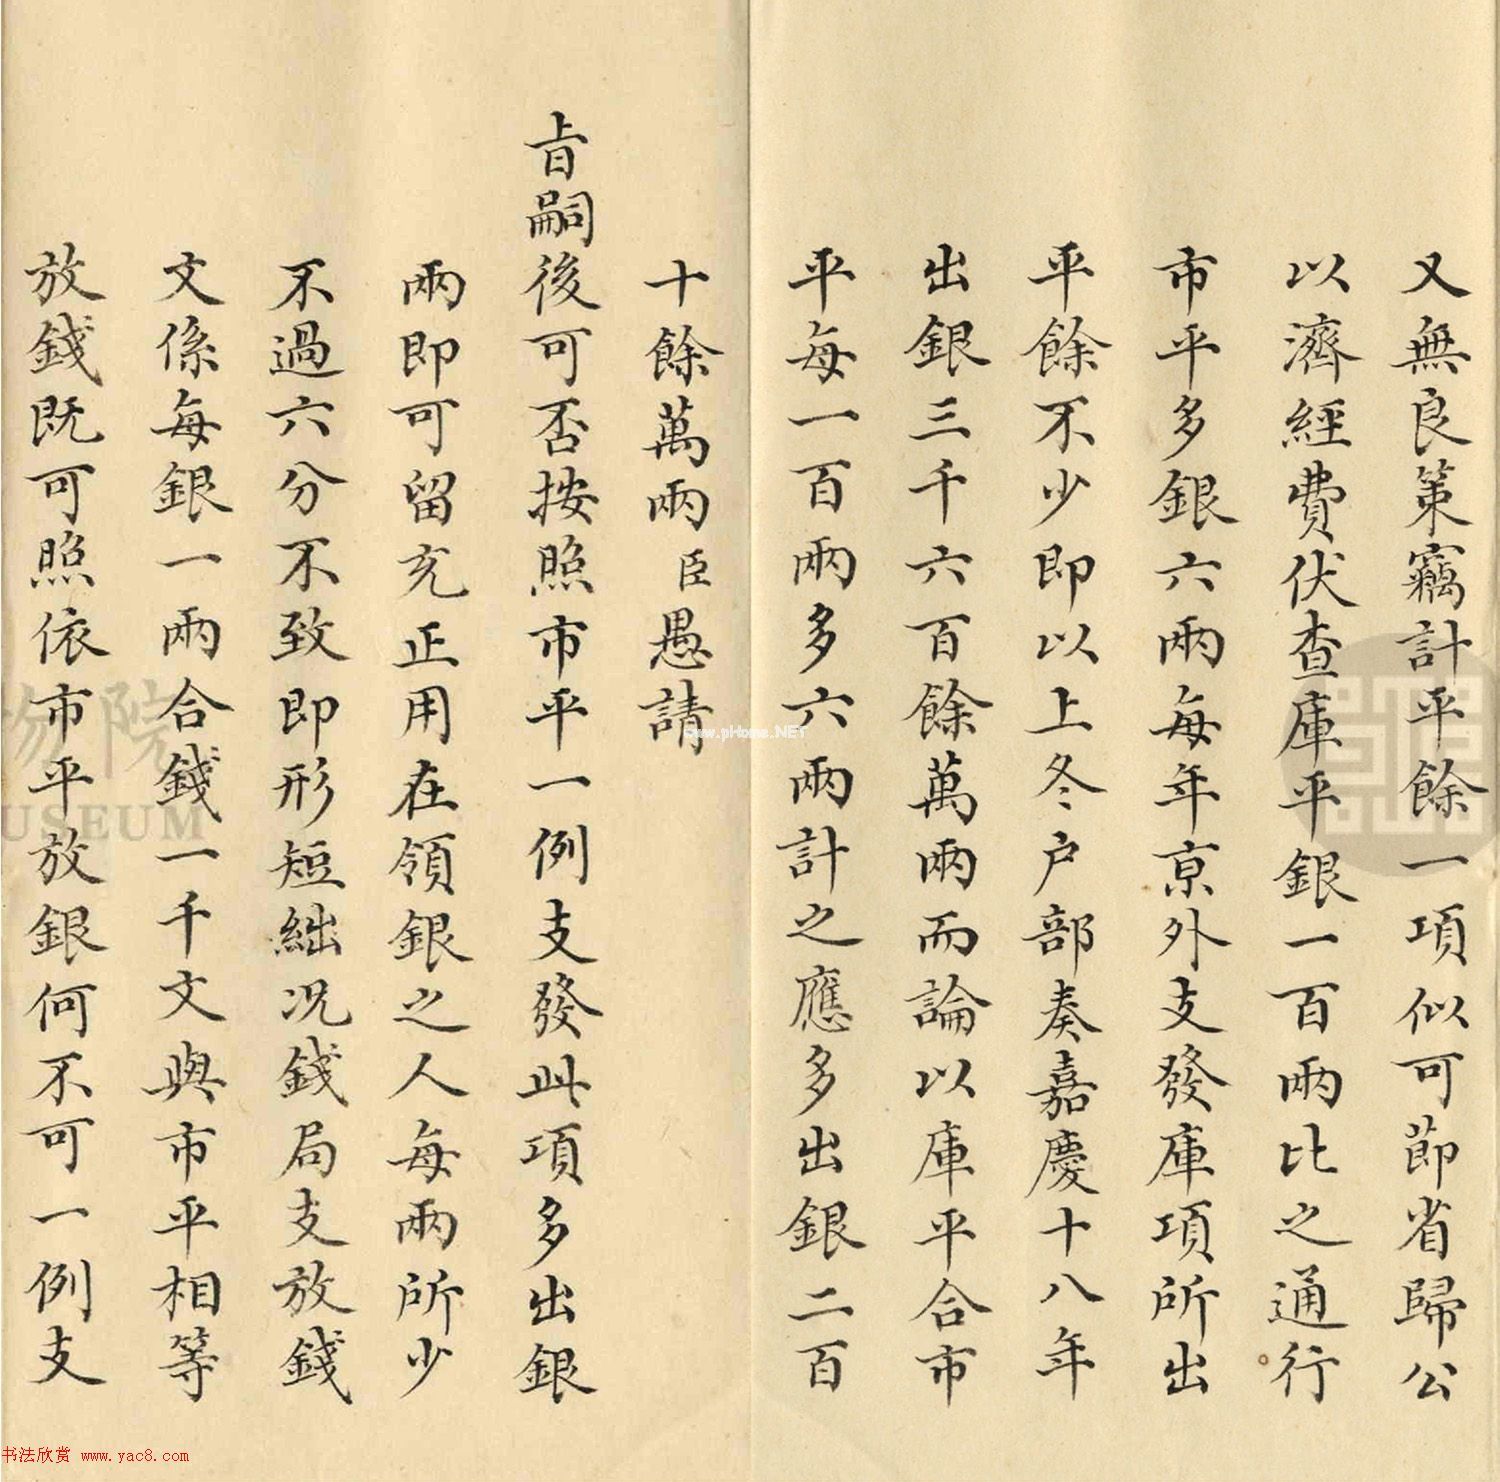 又無良策竊計平餘一項似可節省歸公
以濟經費伏查庫平銀一百兩比之通行
市平多銀六兩每年京外支發庫項所出
平餘不少即以上冬户部奏嘉慶十八年
出銀三千六百餘萬兩而論以庫平合市
平每一百兩多六兩計之應多出銀二百
十餘萬兩臣愚請
旨嗣後可否按照市平一例支發此項多出銀
兩即可留充正用在領銀之人每兩所少
不過六分不致即形短絀况錢局支放錢
文係每銀一兩合錢一千文與市平相等
放錢既可照依市平放銀何不可一例支
物院
USEUM
www.pHome.NET
书法欣赏 www.yac8.com